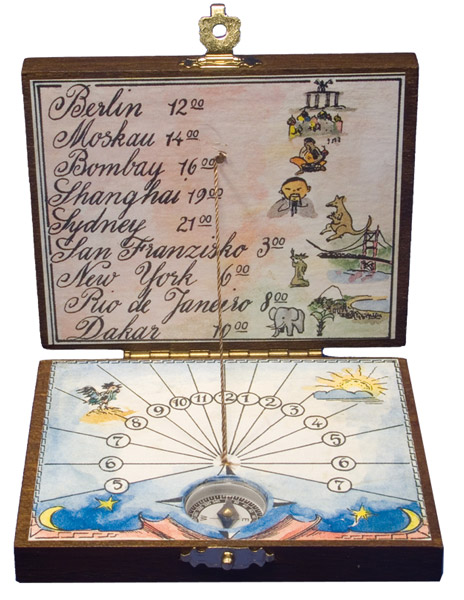 Berlin 12 00
Moskau 14 00
Bombay 16 00
Shanghai 19 00
Sydney 21 00
San Franzisko 3 00
New York 6 00
Rio de Janeiro 8 00
Dakar 10 00
9 10 11 12 1 2 3
8 4
7 5
6 6
5 7